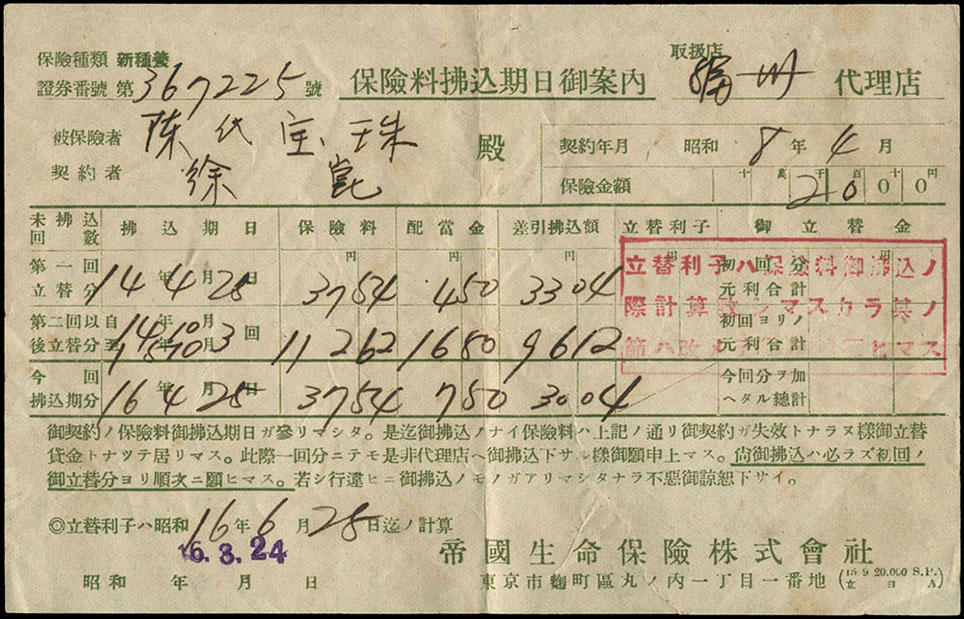 保險種類 新種養
取扱店
證券番號 第367225號 保險料拂込期日御案內 代理店
被保險者 陳氏宝珠 殿
契約者 徐
契約年月 昭和 8年 4月
保險金額 十萬千百十円 2000
未拂込回數 拂込期日 保險料 配當金 差引拂込額 立替利子 御立替金
第一回立替分 14年 4月 25日 3754 450 3304 初回分元利合計
第二回以後立替分 自14年10月 至15年10月 3回 11262 1680 9612 初回ヨリノ元利合計
今回拂込期分 16年 4月 25日 3754 750 3004 今回分ヲ加ヘタル總計
立替利子ハ保險料御拂込ノ
際計算致シマスカラ其ノ
節ハ ヒマス
御契約ノ保險料御拂込期日ガ參リマシタ。是迄御拂込ノナイ保險料ハ上記ノ通リ御契約ガ失效トナラヌ樣御立替
貸金トナツテ居リマス。此際一回分ニテモ是非代理店ヘ御拂込下サル樣御願申上マス。尙御拂込ハ必ラズ初回ノ
御立替分ヨリ順次ニ願ヒマス。若シ行違ヒニ御拂込ノモノガアリマシタナラ不惡御諒恕下サイ。
◎立替利子ハ昭和16年6月25日迄ノ計算
16.3.24
帝國生命保險株式會社
昭和 年 月 日
東京市麴町區丸ノ內一丁目一番地 (15 9 20.000 S.P. 立 ヨ A)